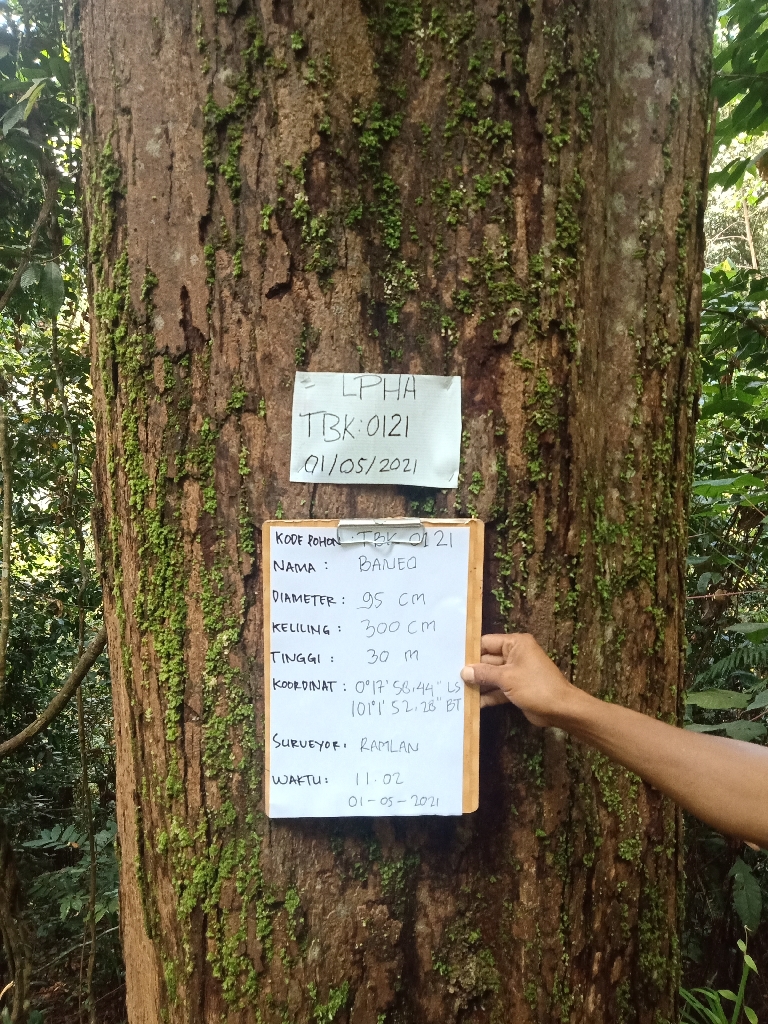 LPHA
TBK:0121
01/05/2021
KODE POHON : TBK 0121
NAMA : BANEO
DIAMETER : 95 CM
KELILING : 300 CM
TINGGI : 30 M
KOORDINAT : 0°17'58,44" LS
101°1'52,28" BT
SURVEYOR : RAMLAN
WAKTU : 11.02
01-05-2021